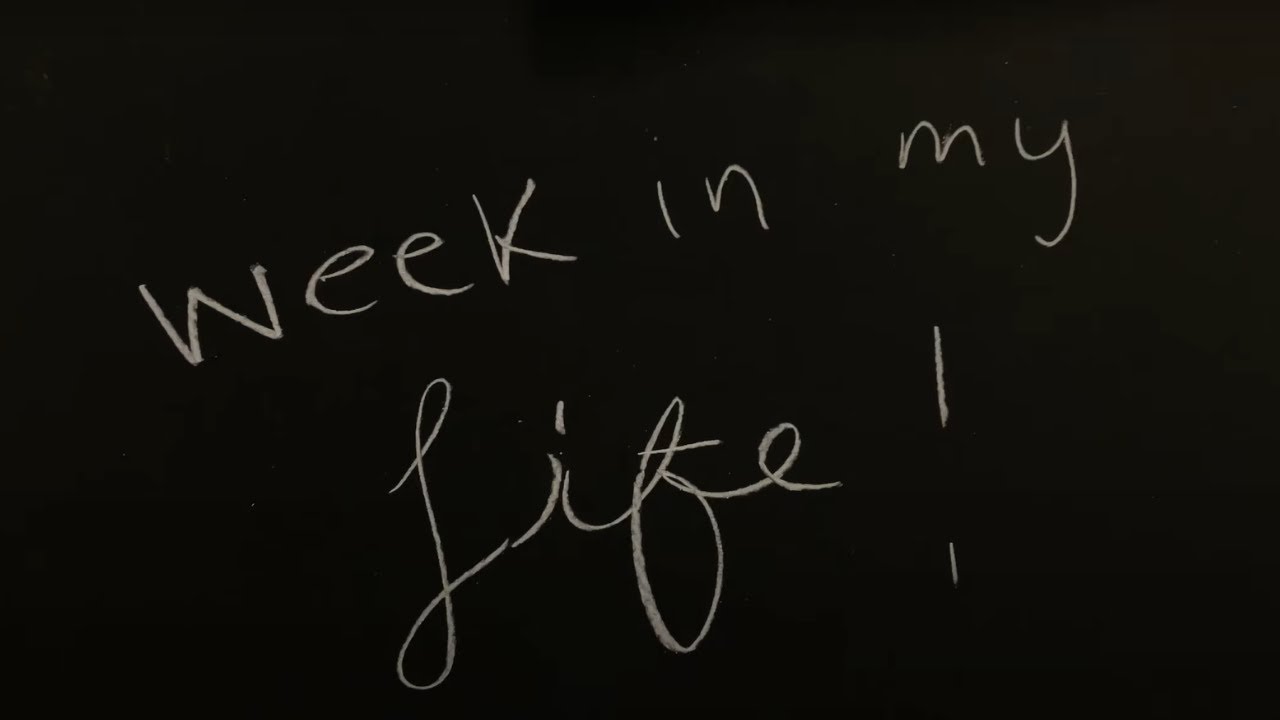 week in my
life!